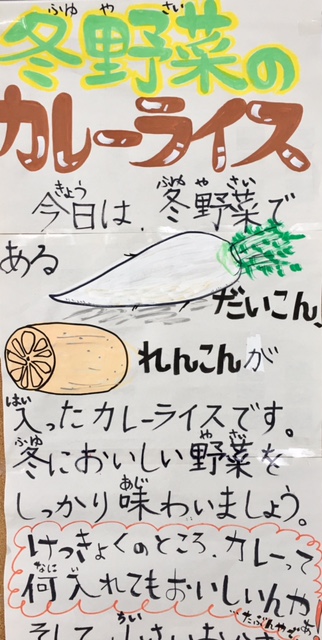 ふゆ や さい
冬野菜の
カレーライス
きょう ふゆ や さい
今日は、冬野菜で
ある
だいこん、
れんこんが
はい
入ったカレーライスです。
ふゆ や さい
冬においしい野菜を
あじ
しっかり味わいましょう。
けっきょくのところ、カレーって
なに い
何入れてもおいしいんや